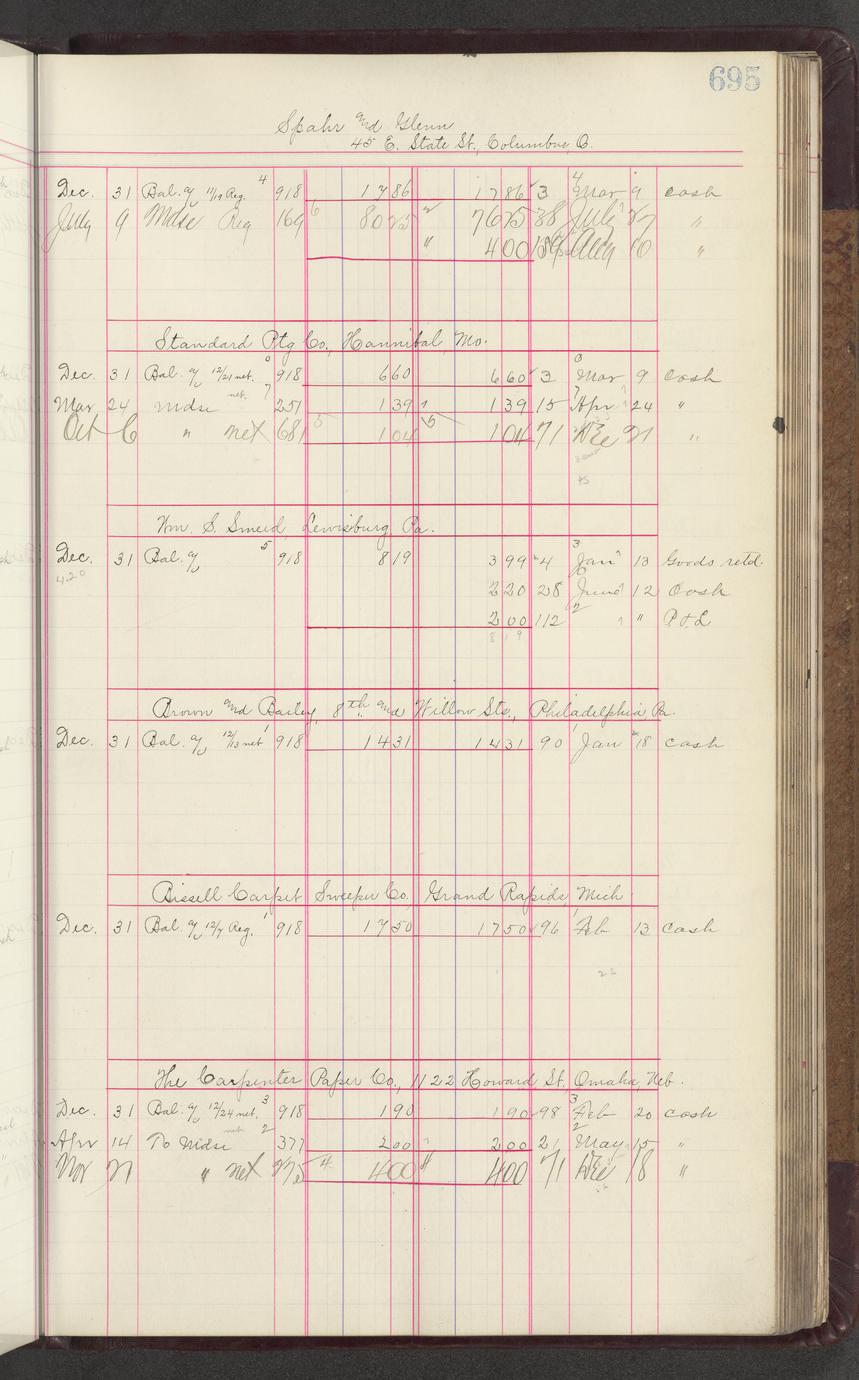 695
Spahr and Glenn
45 E. State St., Columbus, O.
Dec. 31 Bal. a/c 11/19 Reg. 4 918 1786 1786 3 4 Mar 9 cash
July 9 Mdse Reg 169 6 8025 2 7625 38 July 27 "
" 400 Aug 10 "
Standard Ptg Co., Hannibal, Mo.
Dec. 31 Bal. a/c 12/21 net. 0 918 660 660 3 0 Mar 9 Cash
Mar 24 Mdse net. 7 251 139 139 15 7 Apr 24 "
Oct 6 " net 681 5 104 5 104 71 Dec 21 "
45
Wm. S. Smeid, Lewisburg Pa.
Dec. 31 Bal. a/c 5 918 819 399 4 3 Jan 13 Goods retd.
420
220 28 June 12 Cash
200 112 2 " " P & L
819
Brown and Bailey, 8th and Willow Sts., Philadelphia, Pa.
Dec. 31 Bal. a/c 12/13 net 1 918 1431 1431 90 Jan 18 cash
Bissell Carpet Sweeper Co. Grand Rapids, Mich
Dec. 31 Bal. a/c 12/7 Reg. 1 918 1750 1750 96 Feb 13 cash
23
The Carpenter Paper Co., 1122 Howard St. Omaha, Neb.
Dec. 31 Bal. a/c 12/24 net. 3 918 190 190 98 3 Feb 20 cash
Apr 14 To Mdse net 2 377 200 200 21 2 May 15 "
Nov 21 " net 275 4 400 4 400 71 Dec 18 "